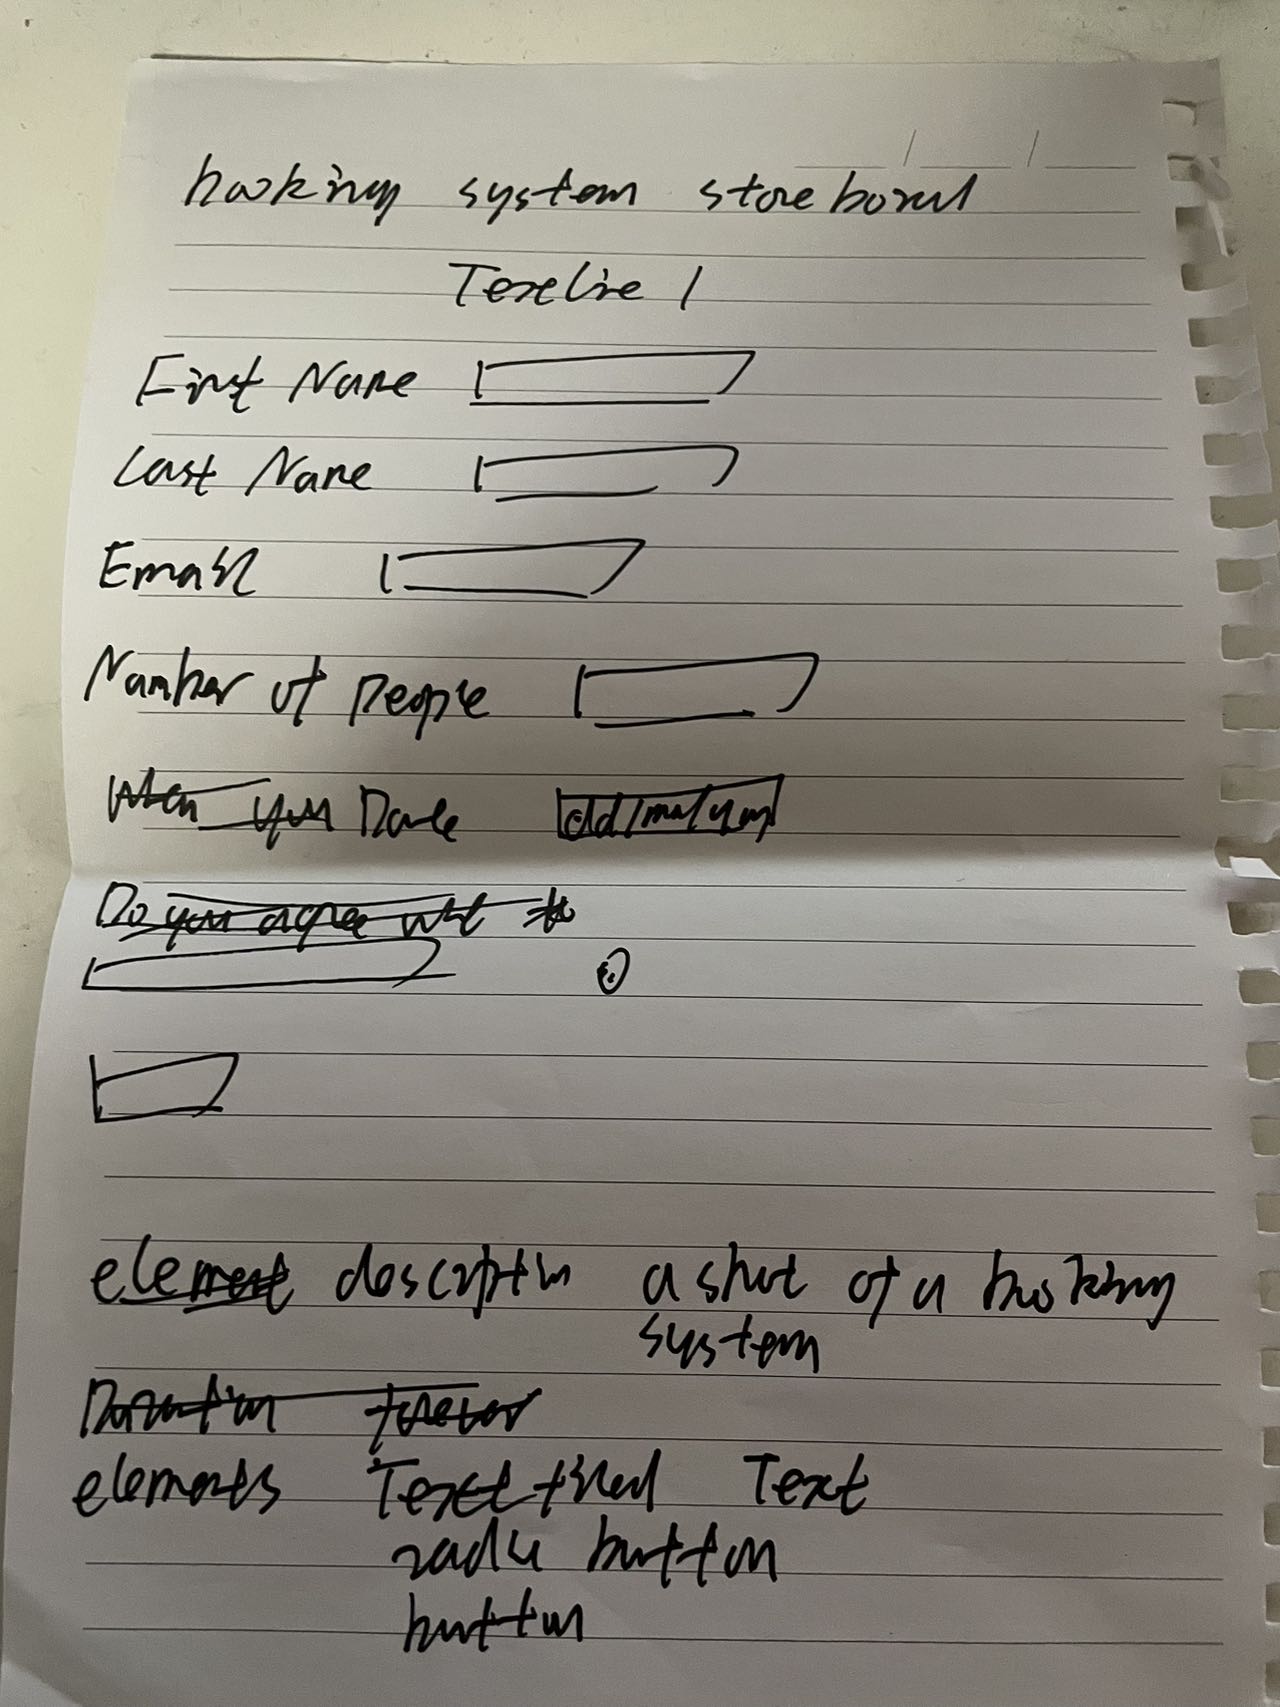 booking system storeboard
Textline 1
First Name
Last Name
Email
Number of people
When you Date dd/mm/yyyy
Do you agree with to
element description a shot of a booking
system
Duration forever
elements Textfiled Text
radio button
button